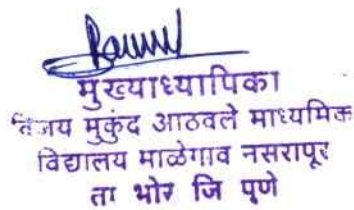 मुख्याध्यापिका
मुकुंद आठवले माध्यमिक
विद्यालय माळेगाव नसरापूर
ता भोर जि पुणे